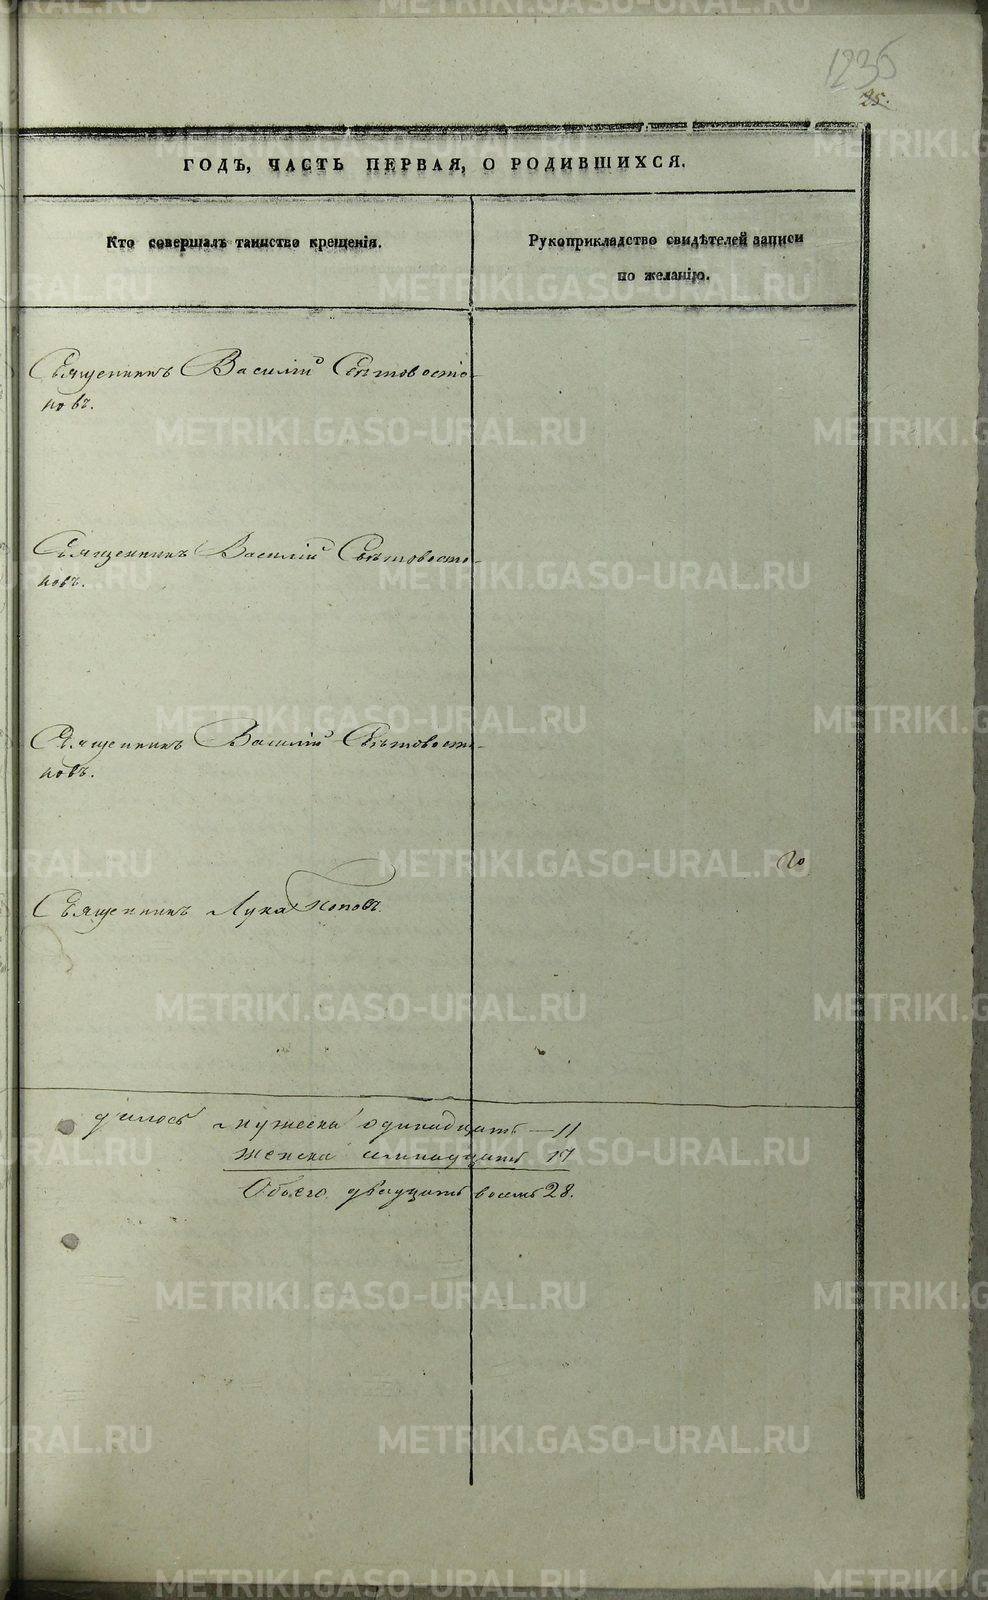 1236
25.
ГОДЪ, ЧАСТЬ ПЕРВАЯ, О РОДИВШИХСЯ.
Кто совершалъ таинство крещенія.
Рукоприкладство свидѣтелей записи
по желанію.
Священникъ Василій Свѣтовосто-
ковъ.
Священникъ Василій Свѣтовосто-
ковъ.
Священникъ Василій Свѣтовосто-
ковъ.
Священникъ Лука Поповъ.
дилось мужеска одинадцать — 11
женска семнадцать 17
Обоего двадцать восемь 28.
METRIKI.GASO-URAL.RU